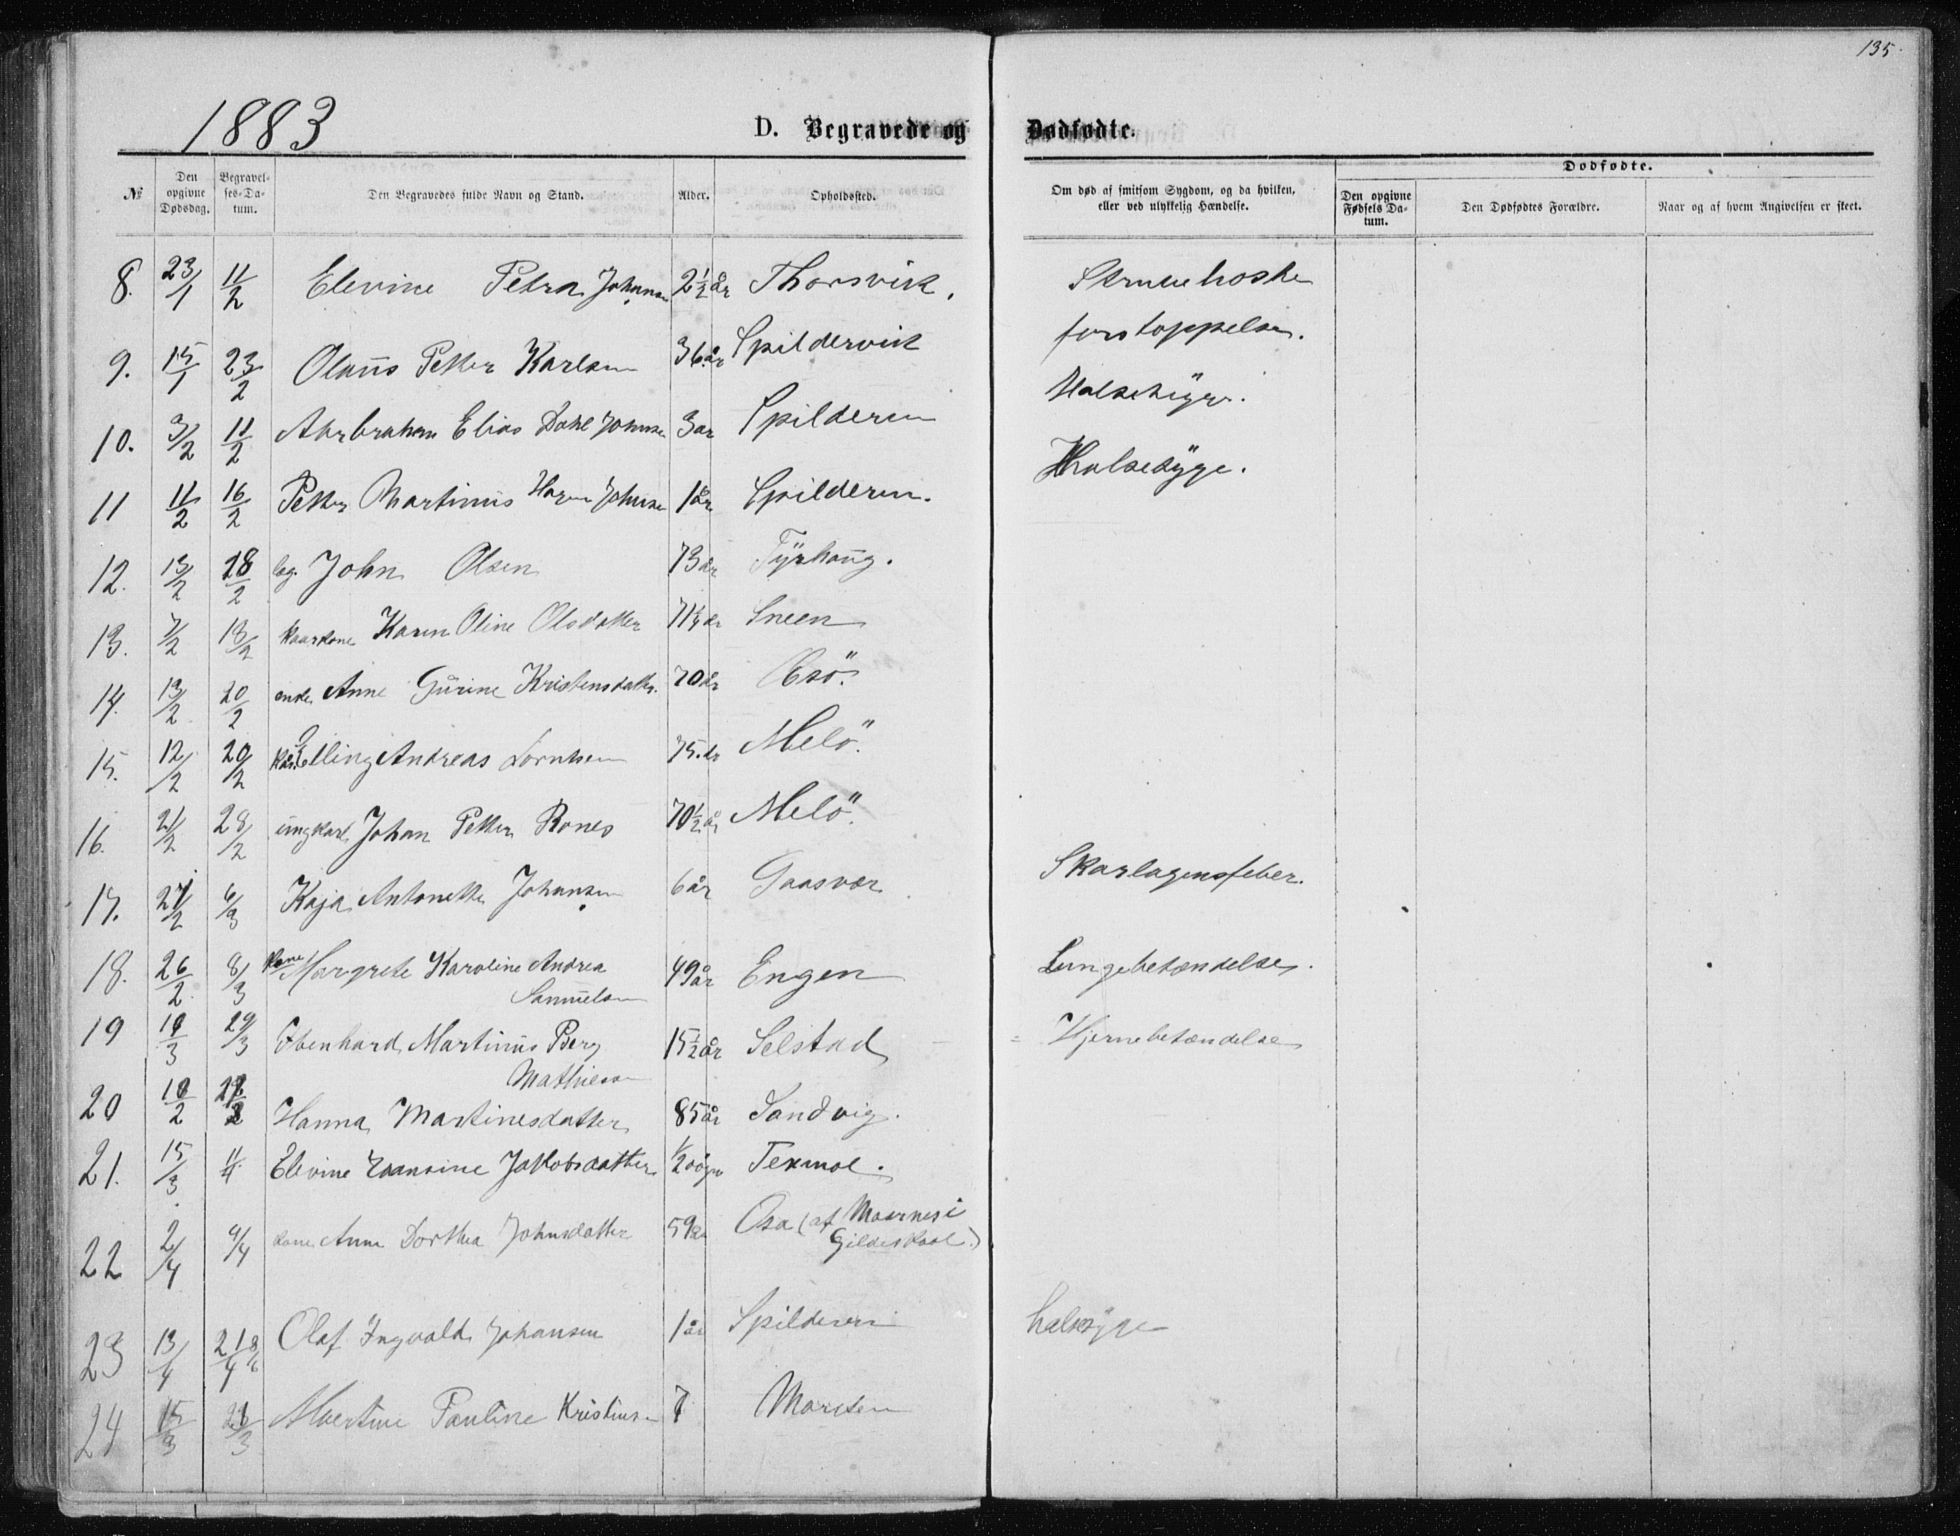 135.
1883
D. Begravede og Dødfødte.
№ Den opgivne Dødsdag. Begravelses-Datum. Den Begravedes fulde Navn og Stand. Alder. Opholdssted. Om død af smitsom Sygdom, og da hvilken, eller ved ulykkelig Hændelse. Dødfødte. Den opgivne Fødsels Datum. Den Dødfødtes Forældre. Naar og af hvem Angivelsen er skeet.
8. 23/1 11/2 Elevine Petra Johansen 2½ år Thorsvik. Strubehoste
9. 15/1 23/2 Olaüs Petter Karlsen 36 år Spildervik forstoppelse.
10. 3/2 11/2 Abrbraham Elias Dahl Johnsen 3 år Spilderen Halsesyge.
11 11/2 16/2 Petter Martinus Johnsen 1 år Spilderen. Halsesyge.
12. 13/2 18/2 John Olsen 73 år Tyrhaug.
13. 7/2 13/2 Karen Oline Olsdatter Sneen
14. 13/2 20/2 enke Anne Gürine Kristensdatter. 70 år
15. 12/2 20/2 Elling Andreas Lorntsen 75. år Melö.
16. 21/2 28/2 ungkarl Johan Petter Rones 70½ år Melö.
17. 27/2 6/3 Kaja Antonette Johansen 6 år Gaasvær Skarlagensfeber.
18. 26/2 8/3 kone Margrete Karoline Andrea Samüelsen 49 år Engen Lungebetændelse.
19 19/3 29/3 Ebenhard Martinüs Berg Mathiesen 15½ år Selstad Hjernebetændelse
20 18/2 Hanna Martinesdatter 85 år Sandvig.
21. 15/3 11/4 Elevine Hansine Jakobsdatter Texmoe.
22 2/4 9/4 kone Anne Dorthea Johnsdatter 59 år Osa (af Maarnes i
Gildeskaal.)
23 13/4 Olaf Ingvald Johansen 1 år Spilderen halssyge
24 15/3 21/3 Martine Pauline Kristiansen 7